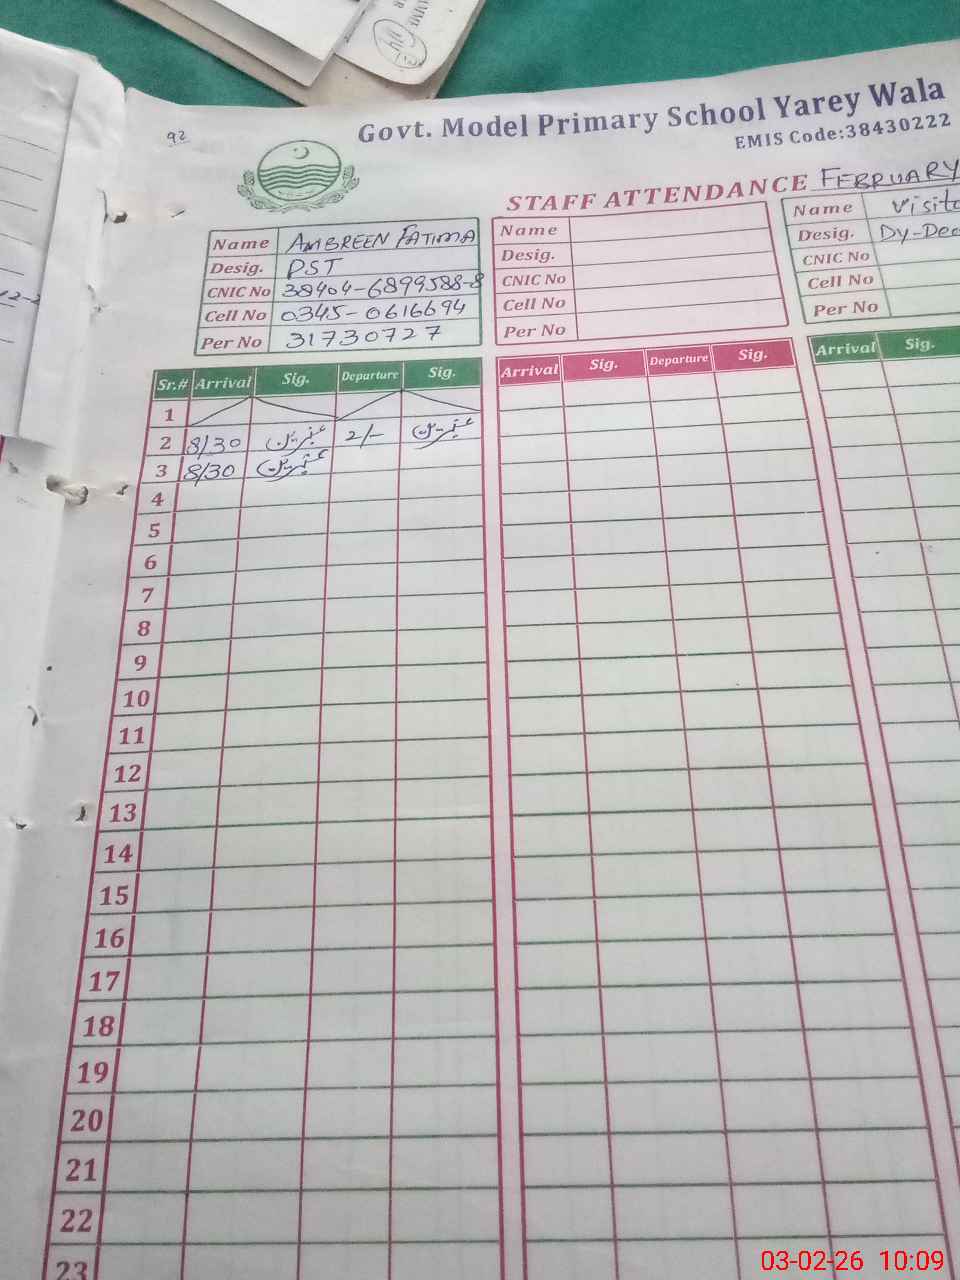 92
Govt. Model Primary School Yarey Wala
EMIS Code:38430222
STAFF ATTENDANCE FEBRUARY
Name AMBREEN FATIMA
Desig. PST
CNIC No 38404-6899588-8
Cell No 0345-0616694
Per No 31730727
Name
Desig.
CNIC No
Cell No
Per No
Name Visito
Desig. Dy-Dee
CNIC No
Cell No
Per No
Sr.# Arrival Sig. Departure Sig. Arrival Sig. Departure Sig. Arrival Sig.
1
2 8/30 عنبرین 2/- عنبرین
3 8/30 عنبرین
4
5
6
7
8
9
10
11
12
13
14
15
16
17
18
19
20
21
22
23
03-02-26 10:09